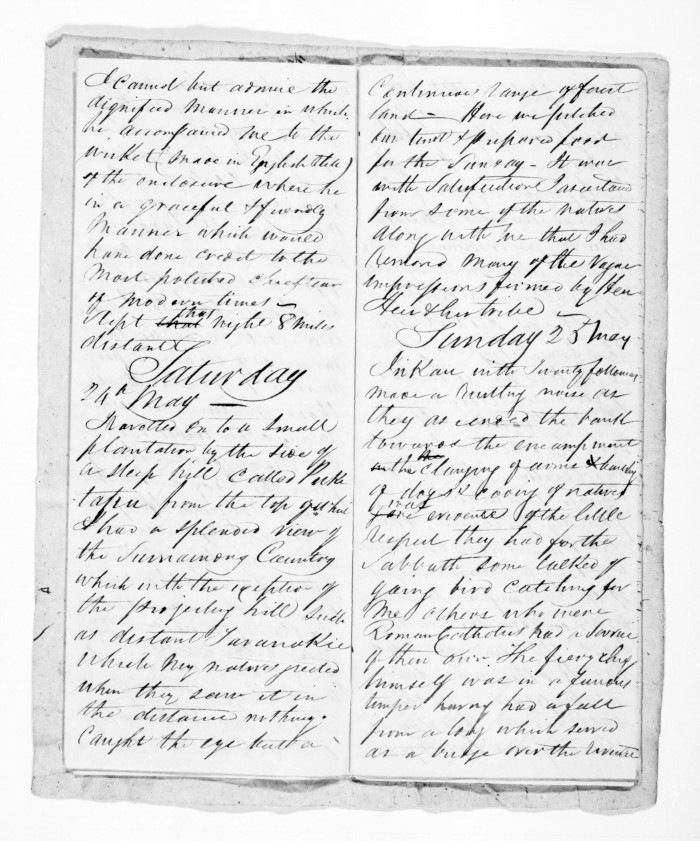 I cannot but admire the
dignified manner in which
he accompanied me to the
wicket (made in English style)
of the enclosure where he
in a graceful & friendly
manner which would
have done credit to the
most polished chieftain
of modern times –
slept that this night 8 miles
distant
Saturday
24th May —
Travelled on to a small
plantation by the side of
a steep hill called Puke
tapu from the top of this hill
I had a splendid view of
the surrounding Country
which with the exception of
the projecting hill such
as distant Taranakie
which my natives greeted
when they saw it in
the distance nothing
caught the eye but a
continuous range of forest
land – Here we pitched
our tent & prepared food
for the Sunday – It was
with satisfaction I ascertained
from some of the natives
along with me that I had
removed many of the vague
impressions formed by Heu
Heu & his tribe –
Sunday 25 May
Inkau with Twenty followers
made a bustling noise as
they ascended the bank
towards the encampment
the clanging of arms &
of dogs & of natives
was evidence of the little
respect they had for the
Sabbath some talked of
going bird catching for
me others who were
Roman Catholics had a Service
of their own. The fiery chief
himself was in a furious
temper having had a fall
from a log which served
as a bridge over the